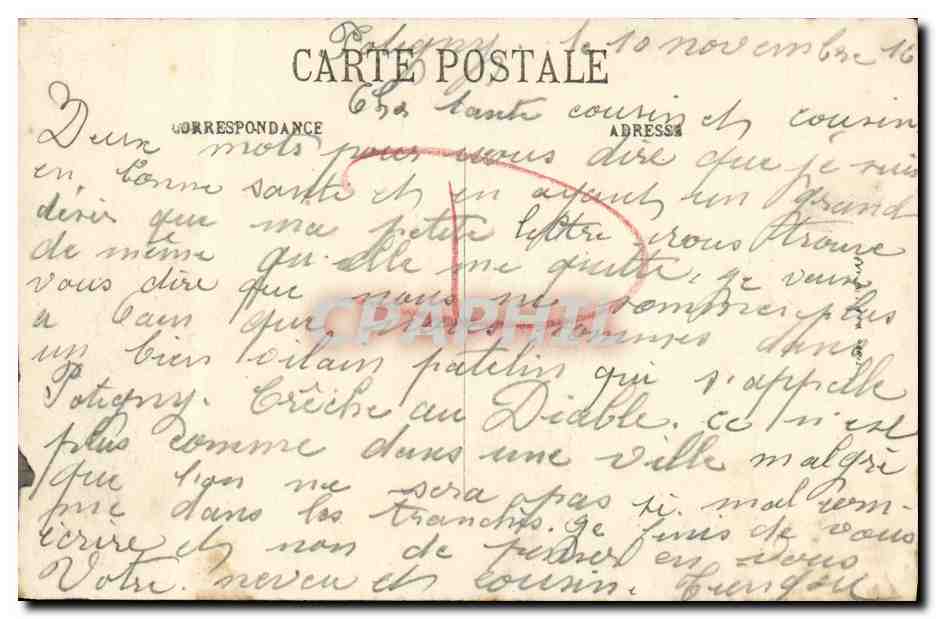 Potigny le 10 novembre 16
CARTE POSTALE
Cher tante cousin et cousin
CORRESPONDANCE
ADRESSE
Deux mots pour vous dire que je suis
en bonne santé et en ayant un grand
désir que ma petite lettre vous trouve
de même qu'elle me quitte. je veux
vous dire que nous ne sommes plus
CPAPHIL
a Caen que nous sommes dans
un bien vilain patelin qui s'appelle
Potigny. Crêche au Diable. ce n'est
plus comme dans une ville malgré
que l'on ne sera pas si mal com-
me dans les tranchés. je finis de vous
écrire et non de penser en vous
Votre neveu et cousin.